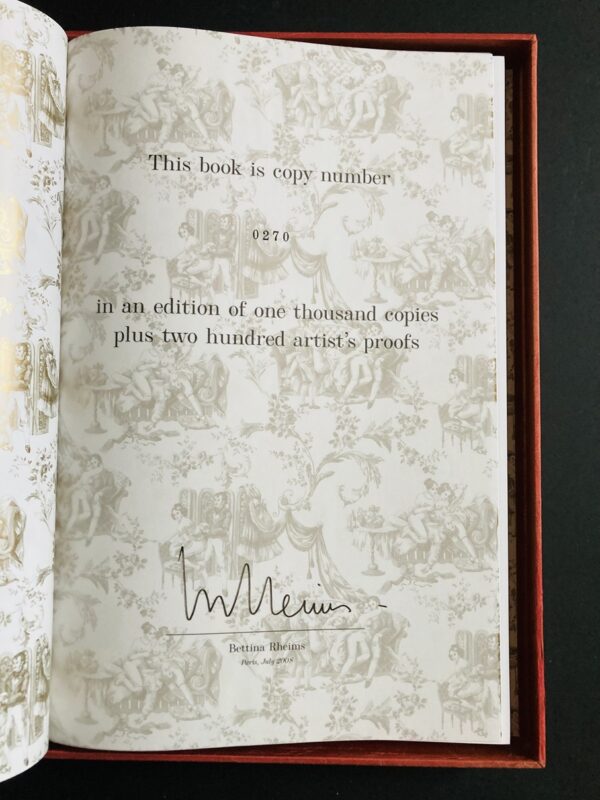 This book is copy number
0270
in an edition of one thousand copies
plus two hundred artist's proofs
Bettina Rheims
Paris, July 2008